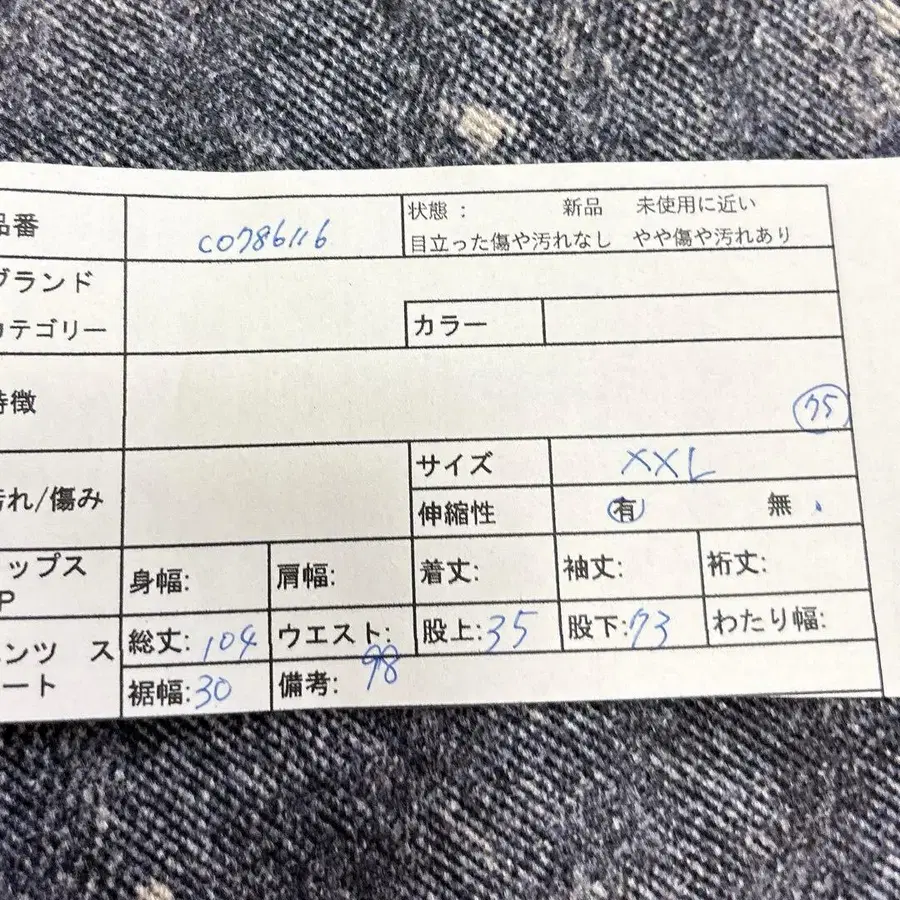 品番 C0786116 状態: 新品 未使用に近い
目立った傷や汚れなし やや傷や汚れあり
ブランド
カテゴリー カラー
特徴 75
汚れ/傷み サイズ XXL
伸縮性 有 無
ップス 身幅: 肩幅: 着丈: 袖丈: 裄丈:
P
ンツ ス 総丈: 104 ウエスト: 98 股上: 35 股下: 73 わたり幅:
ート 裾幅: 30 備考: